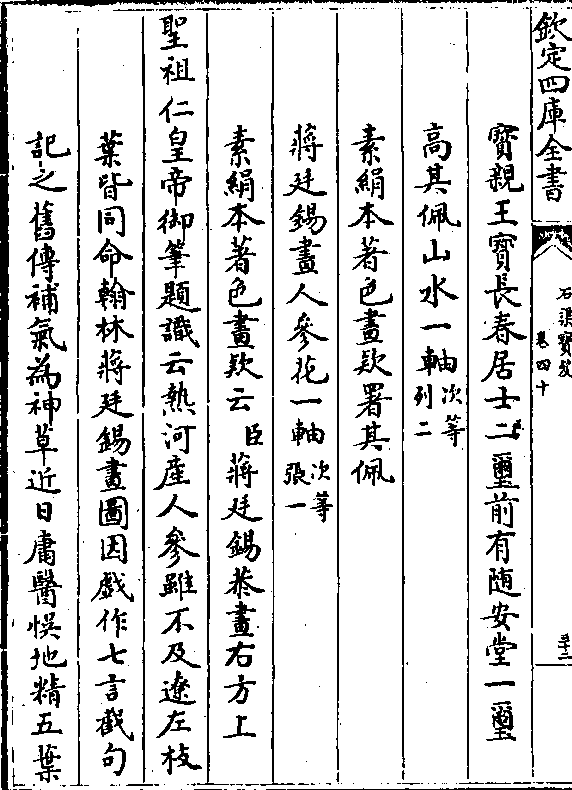 欽定四庫全書
石渠寶笈
卷四十
三十二
寶親王寶長春居士二璽前有随安堂一璽
高其佩山水一軸次等列二
素絹本著色畫欵署其佩
蔣廷錫畫人參花一軸次等張一
素絹本著色畫欵云臣蔣廷錫恭畫右方上
聖祖仁皇帝御筆題識云熱河産人參雖不及遼左枝
葉皆同命翰林蔣廷錫畫圖因戲作七言截句
記之舊傳補氣為神草近日庸醫悞地精五葉